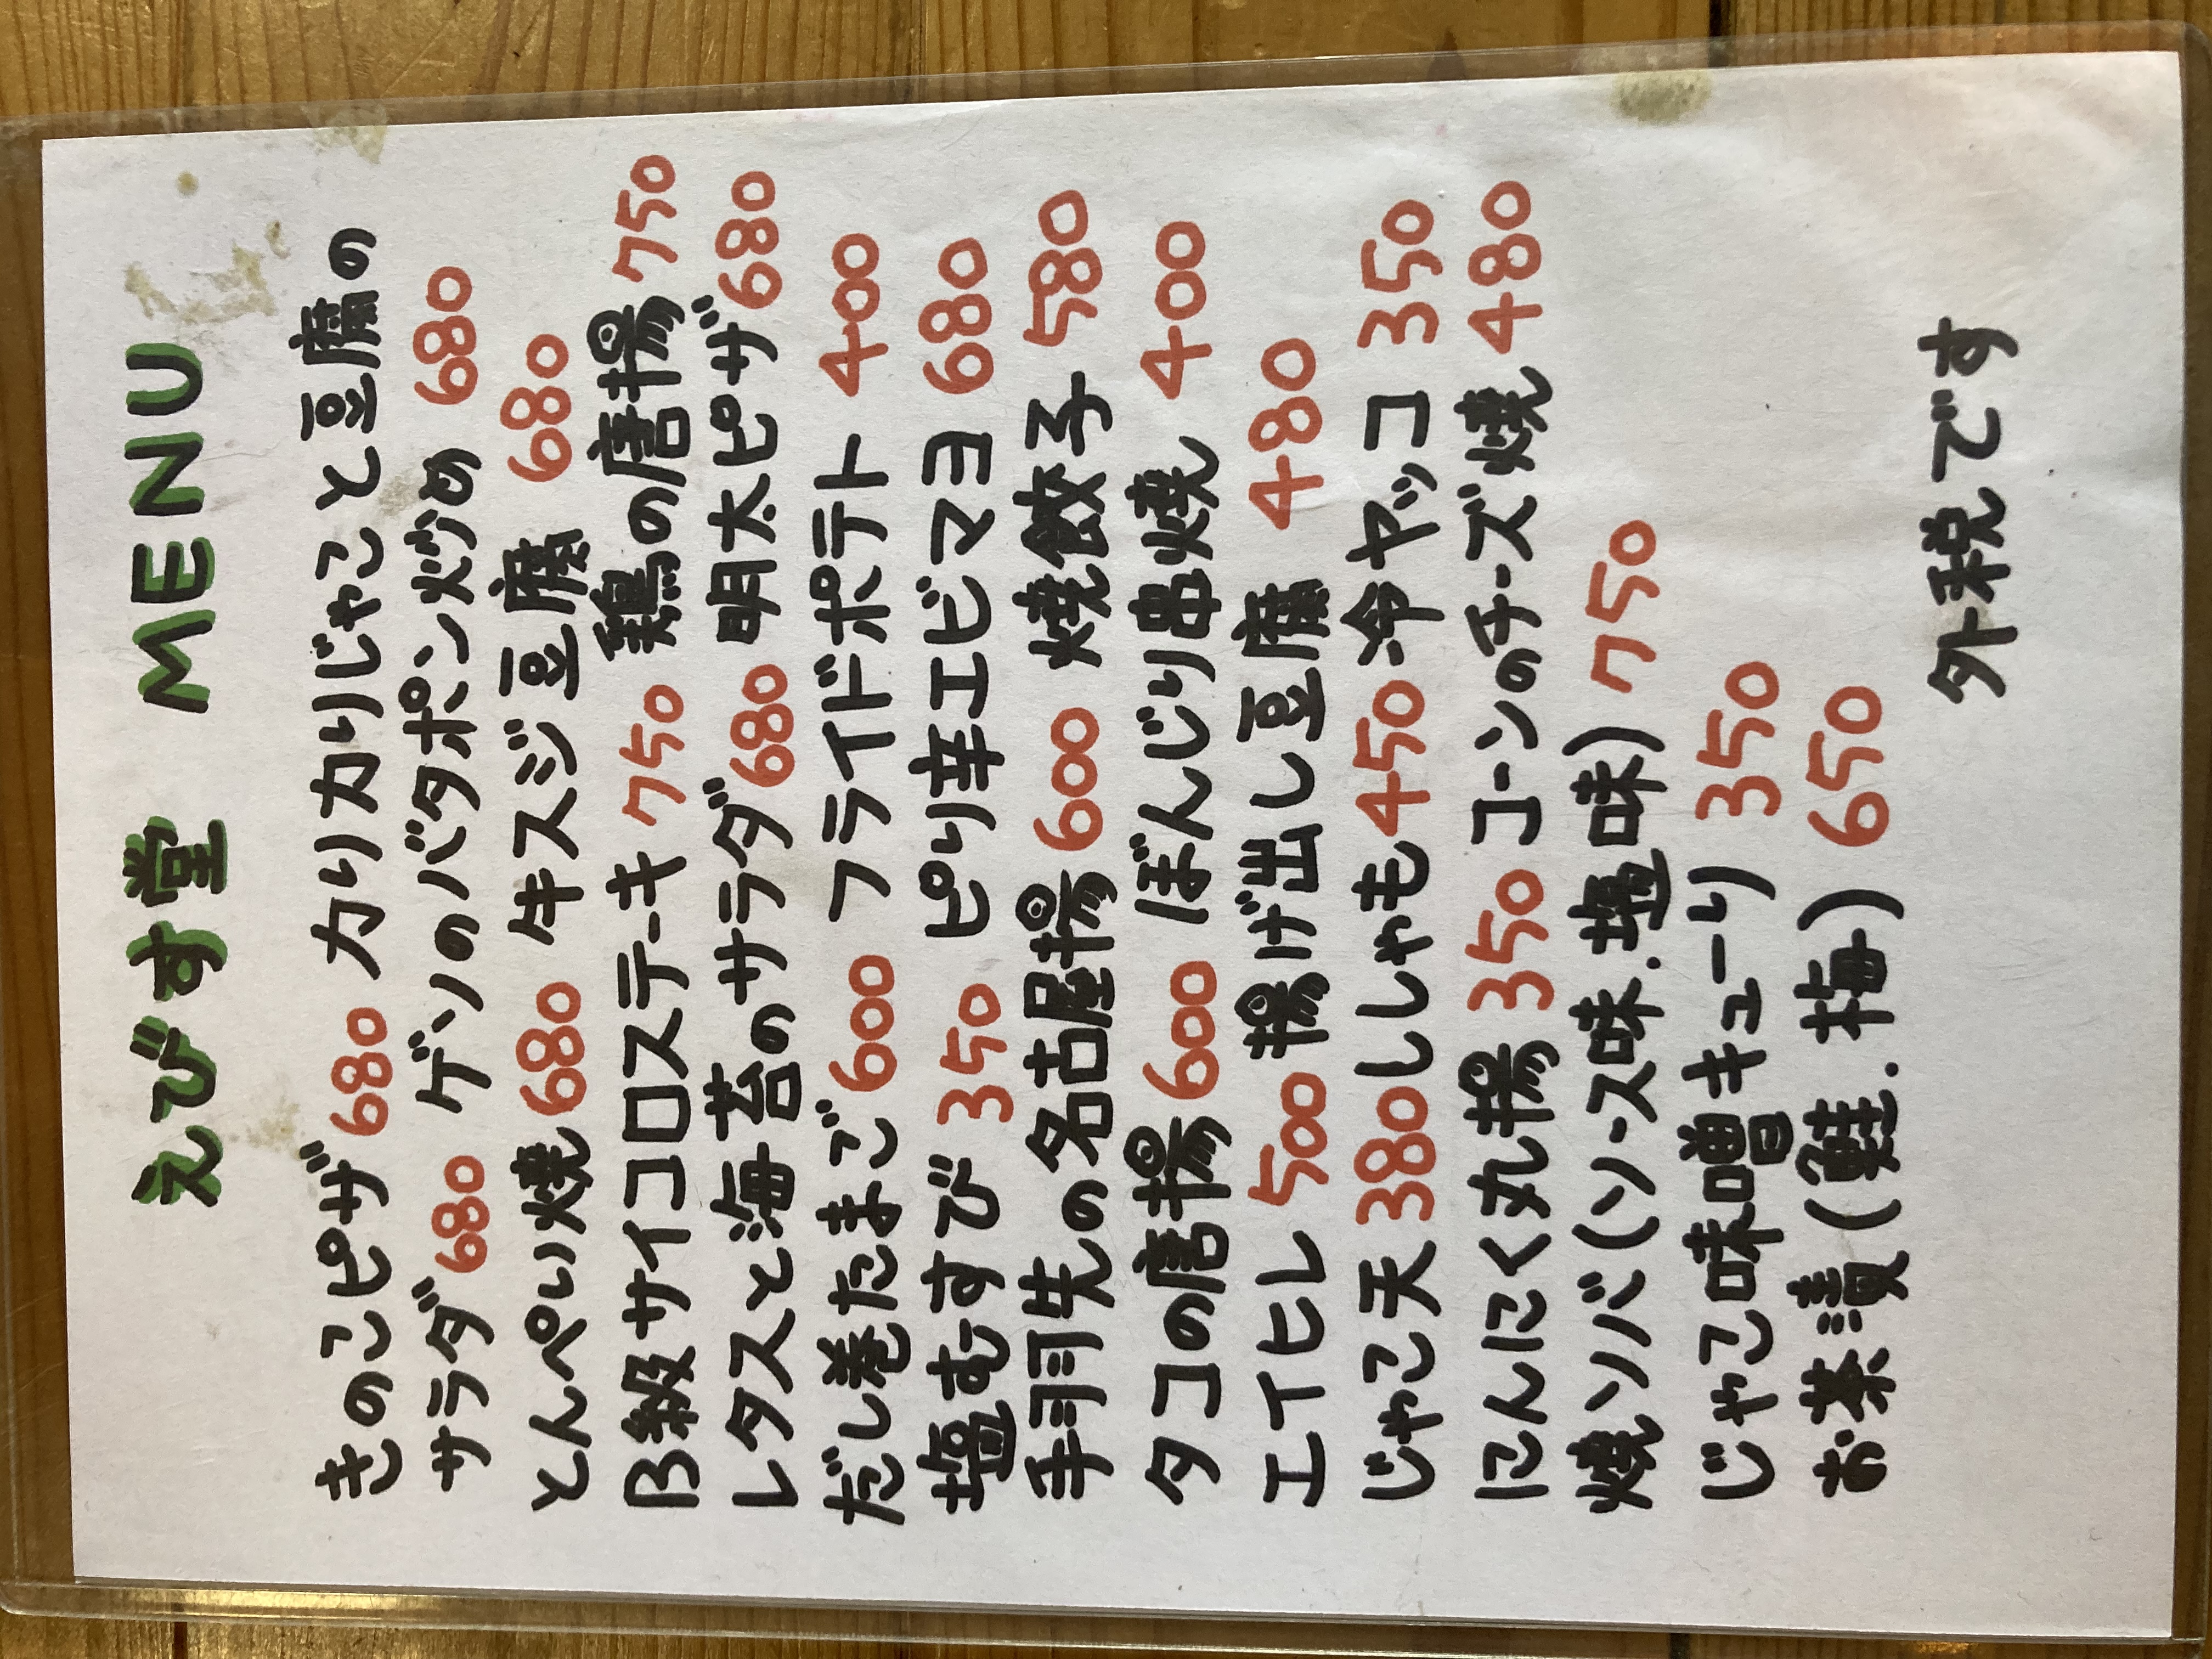 えびす堂 MENU
きのこピザ 680 カリカリじゃこと豆腐の
サラダ 680 ゲソのバタポン炒め 680
とんぺい焼 680 牛スジ豆腐 680
B級サイコロステーキ 750 鶏の唐揚 750
レタスと海苔のサラダ 680 明太ピザ 680
だし巻たまご 600 フライドポテト 400
塩むすび 350 ピリ辛エビマヨ 680
手羽先の名古屋揚 600 焼餃子 580
タコの唐揚 600 ぼんじり串焼 400
エイヒレ 500 揚げ出し豆腐 480
じゃこ天 380 ししゃも 450 冷ヤッコ 350
にんにく丸揚 350 コーンのチーズ焼 480
焼ソバ(ソース味.塩味) 750
じゃこ味噌キューリ 350
お茶漬(鮭.梅) 650
外税です